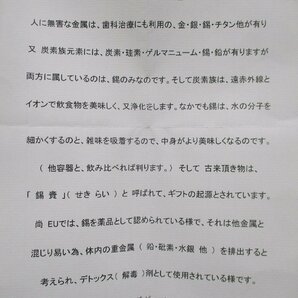 人に無害な金属は、歯科治療にも利用の、金・銀・錫・チタン他が有り
又 炭素族元素には、炭素・珪素・ゲルマニューム・錫・鉛が有りますが
両方に属しているのは、錫のみなのです。そして炭素族は、遠赤外線と
イオンで飲食物を美味しく、又浄化をします。なかでも錫は、水の分子を
細かくするのと、雑味を吸着するので、中身がより美味しくなるのです。
( 他容器と、飲み比べれば判ります。) そして 古来頂き物は、
「 錫 賚 」( せき らい ) と 呼ばれて、ギフトの起源とされています。
尚 EUでは、錫を薬品として認められている様で、それは他金属と
混じり易い為、体内の重金属 ( 鉛・砒素・水銀 他 ) を排出すると
考えられ、デトックス ( 解毒 ) 剤として使用されている様です。